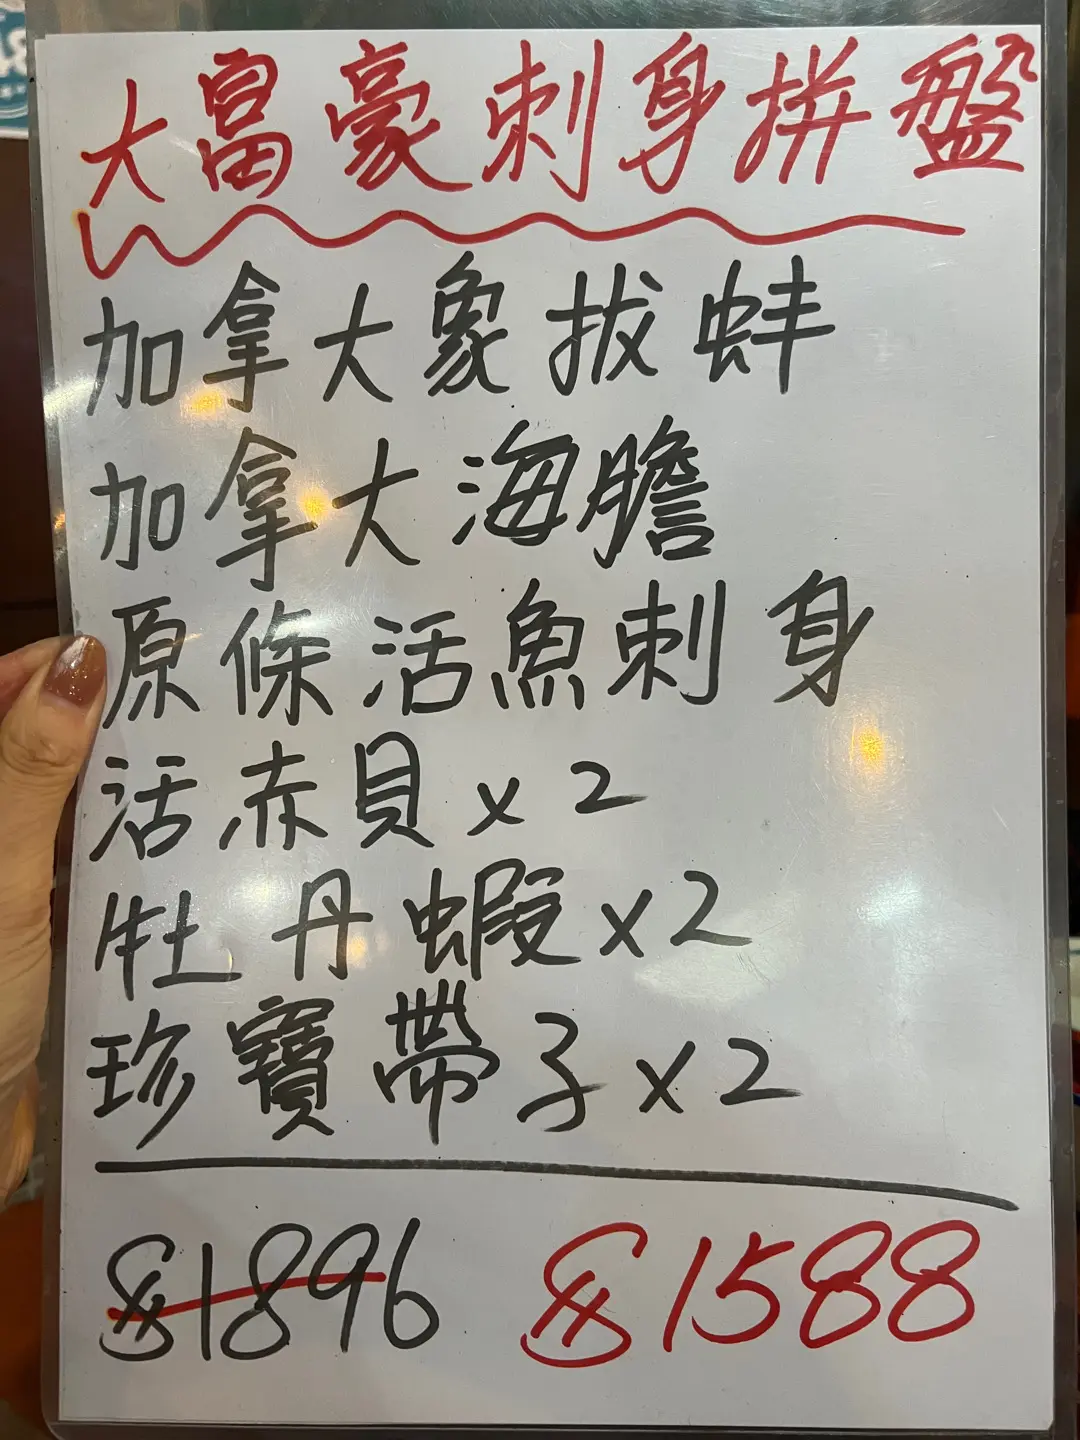 大富豪刺身拼盤
加拿大象拔蚌
加拿大海膽
原條活魚刺身
活赤貝x2
牡丹蝦x2
珍寶帶子x2
$1896 $1588